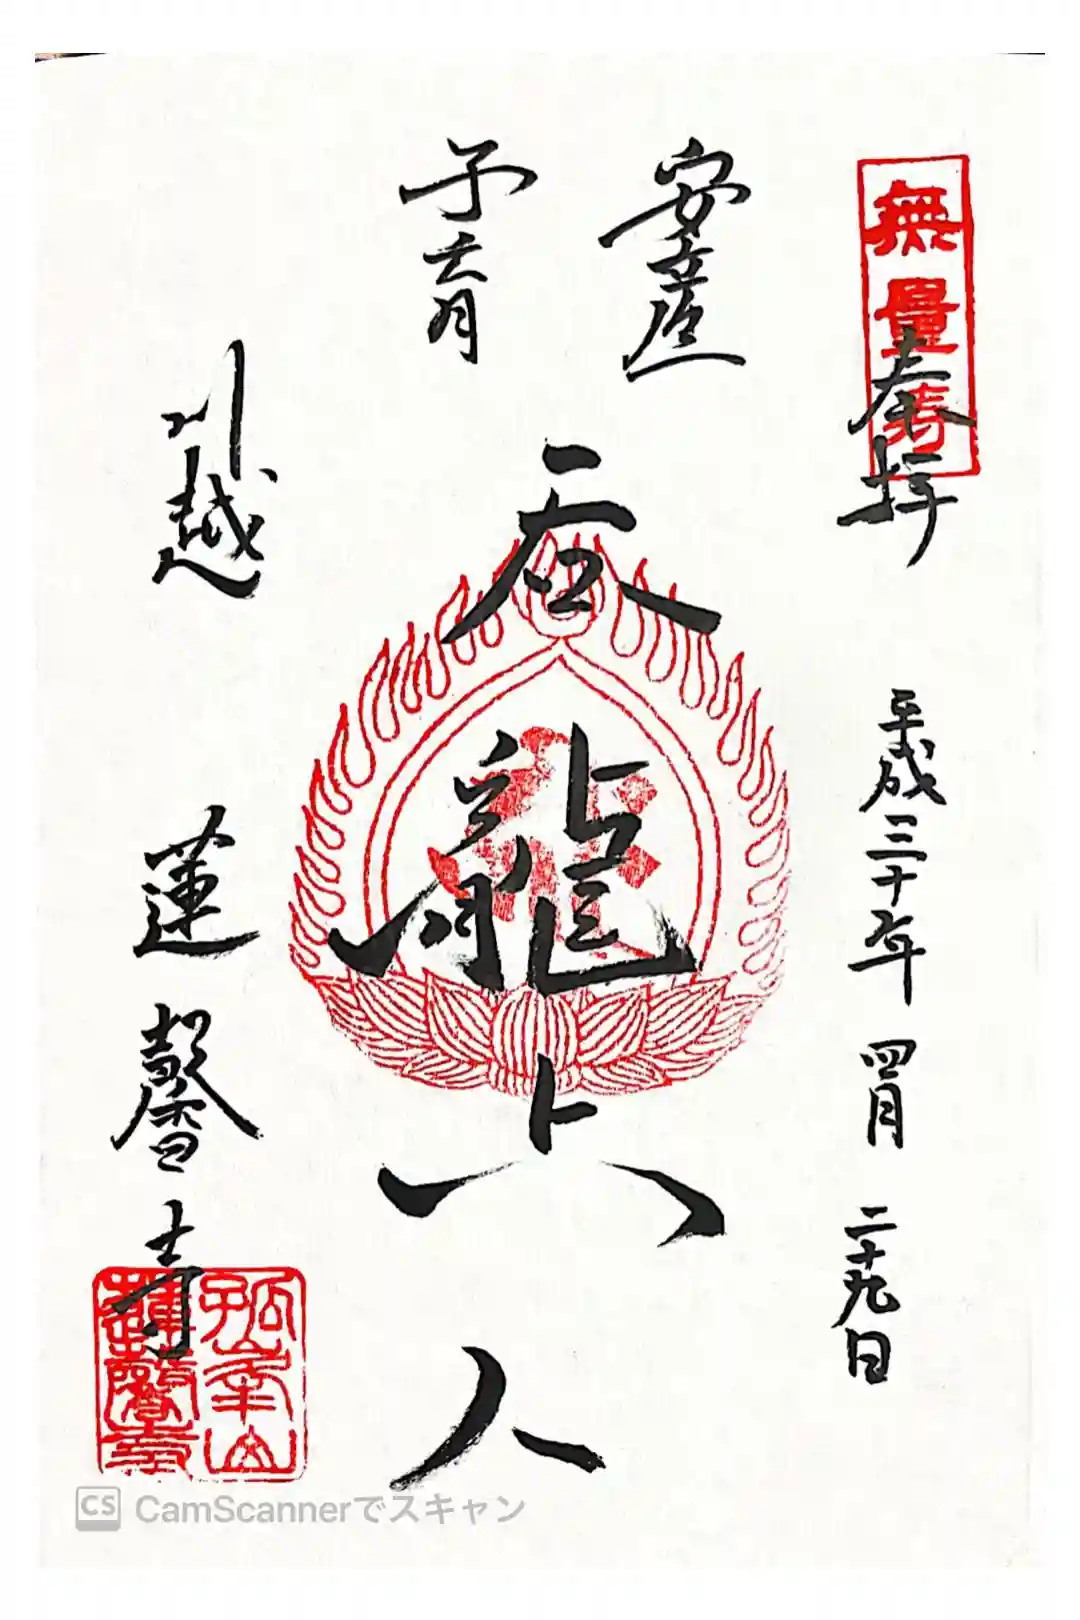 無量寿
奉拝
平成三十年 四月 二十九日
安産
子育
呑龍上人
川越 蓮馨寺
孤峯山
蓮馨寺
CS CamScannerでスキャン